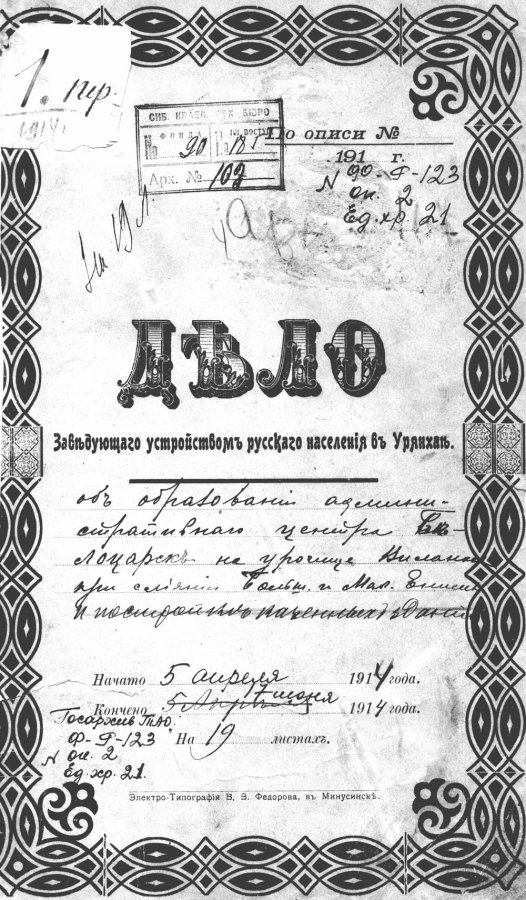 1. пер.
1914 г.
СИБ. КРАЕВ. БЮРО
ФОНДА
№ 90
Арх. № 103
По описи №
191 г.
N 90-Ф-123
оп. 2
Ед. хр. 21
ДѢЛО
Завѣдующаго устройствомъ русскаго населенія въ Урянхаѣ.
объ образованіи админи-
стративнаго центра Бѣ-
лоцарскъ на урочище
при слiянiи Больш. и Мал. Енисея
и постройкѣ казенныхъ зданій
Начато 5 апреля 1914 года.
7 июня
Кончено 5 Апрѣля 1914 года.
Госархив
Ф-Р-123 На 19 листахъ.
N оп. 2
Ед. хр. 21.
Электро-Типографія В. В. Федорова, въ Минусинскѣ.